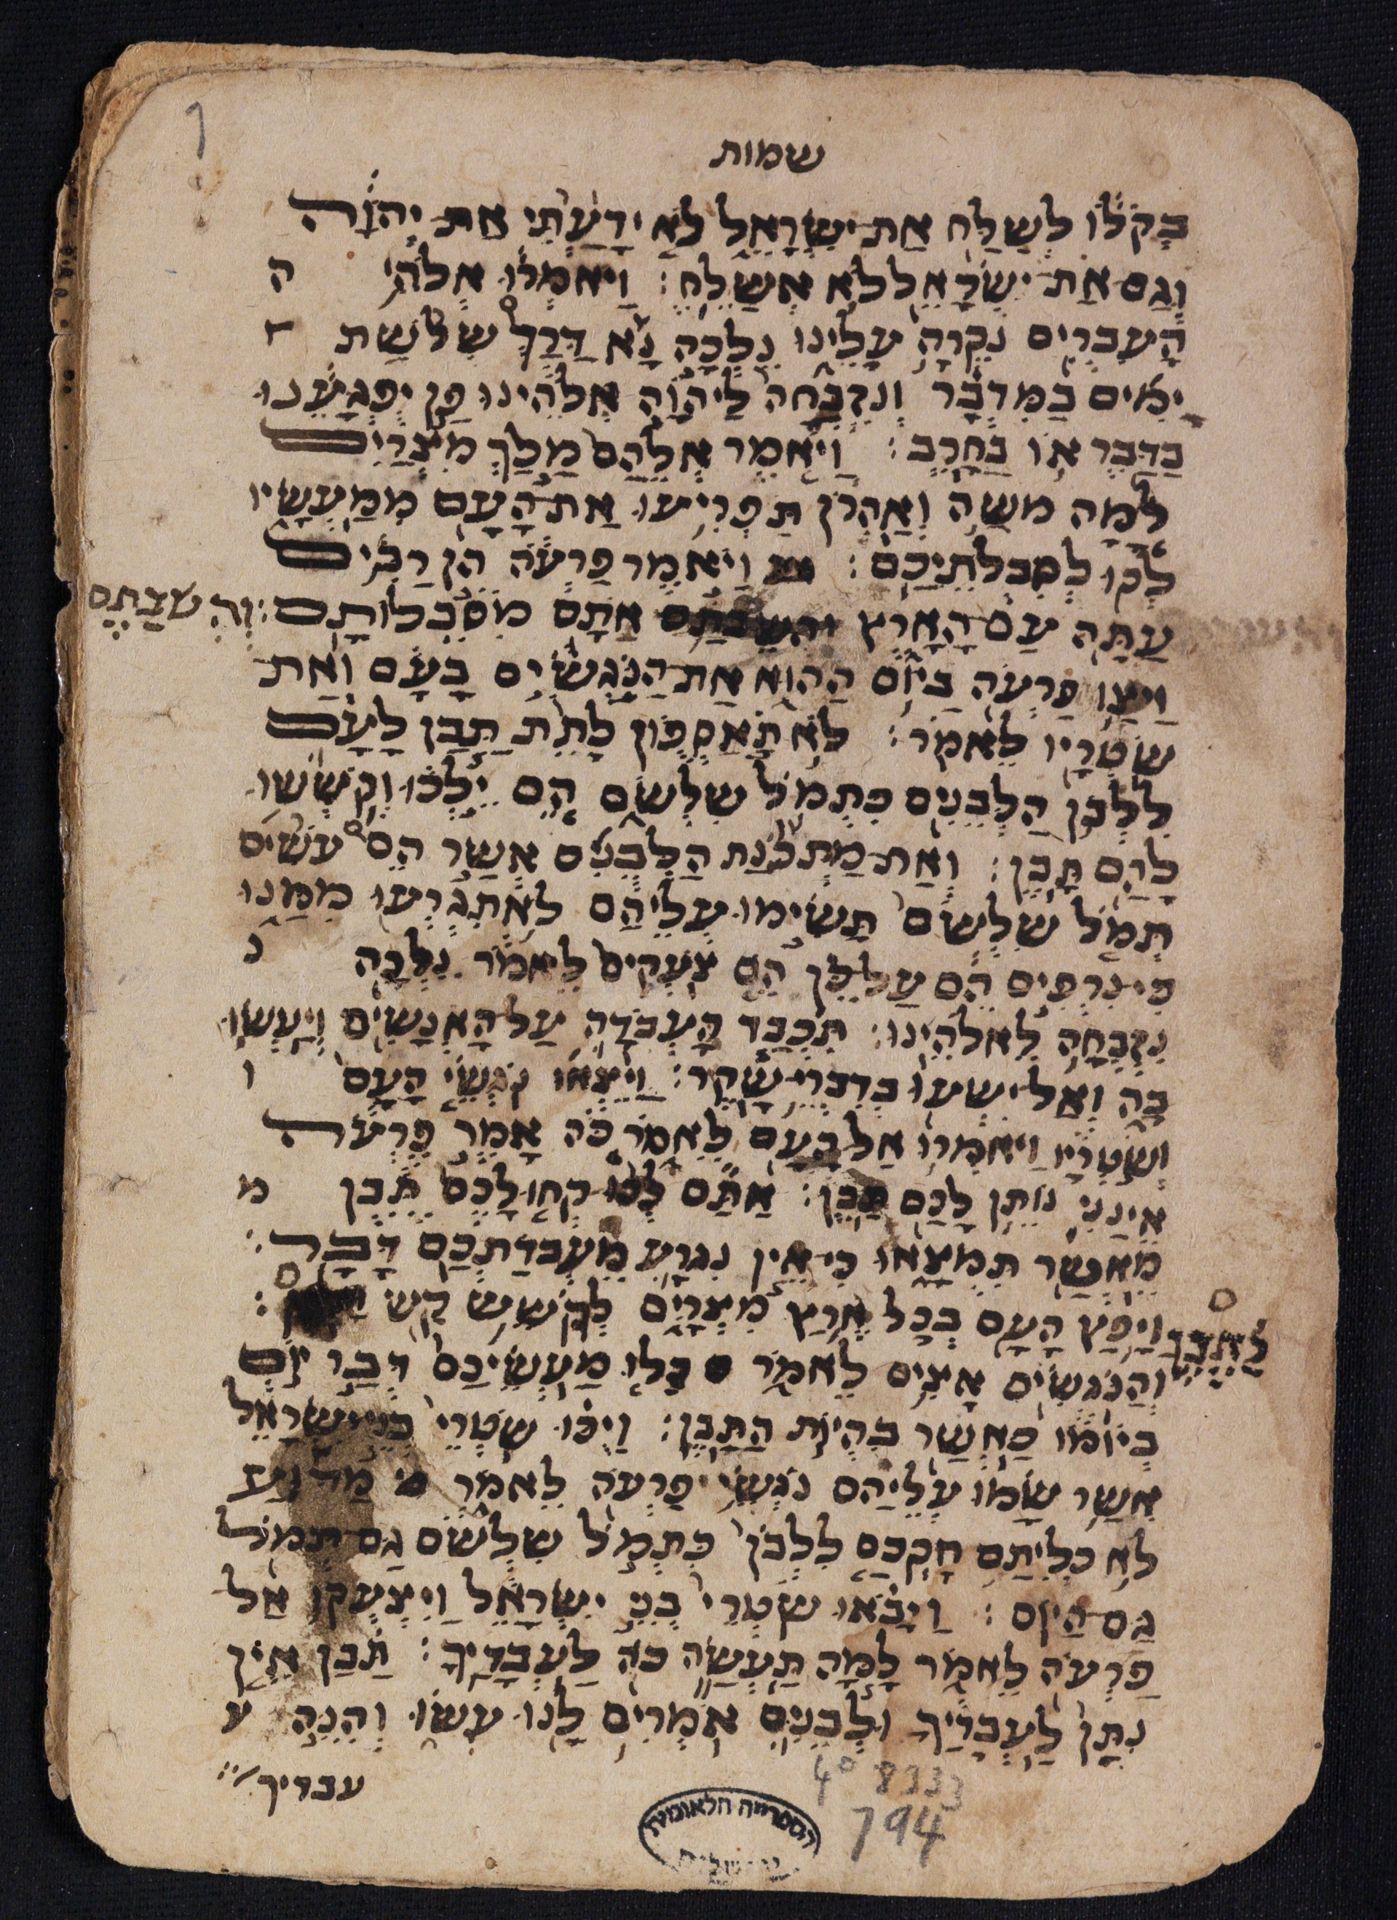 שמות
בְּקֹלוֹ לְשַׁלַּח אֶת־יִשְׂרָאֵל לֹא יָדַעְתִּי אֶת־יְהוָה
וְגַם אֶת־יִשְׂרָאֵל לֹא אֲשַׁלֵּחַ: וַיֹּאמְרוּ אֱלֹהֵי ה
הָעִבְרִים נִקְרָה עָלֵינוּ נֵלֲכָה נָּא דֶּרֶךְ שְׁלֹשֶׁת
יָמִים בַּמִּדְבָּר וְנִזְבְּחָה לַיהוָה אֱלֹהֵינוּ פֶּן יִפְגָּעֵנוּ
בַּדֶּבֶר אוֹ בֶחָרֶב: וַיֹּאמֶר אֲלֵהֶם מֶלֶךְ מִצְרַיִם
לָמָּה מֹשֶׁה וְאַהֲרֹן תַּפְרִיעוּ אֶת־הָעָם מִמַּעֲשָׂיו
לְכוּ לְסִבְלֹתֵיכֶם: וַיֹּאמֶר פַּרְעֹה הֵן רַבִּים
עַתָּה עַם הָאָרֶץ והשבתם אֹתָם מִסִּבְלוֹתָם: וְהִשְׁבַּתֶּם
וַיְצַו פַּרְעֹה בַּיּוֹם הַהוּא אֶת־הַנֹּגְשִׂים בָּעָם וְאֶת־
שֹׁטְרָיו לֵאמֹר: לֹא תֹאסִפוּן לָתֵת תֶּבֶן לָעָם
לִלְבֹּן הַלְּבֵנִים כִּתְמֹל שִׁלְשֹׁם הֵם יֵלְכוּ וְקֹשְׁשׁוּ
לָהֶם תֶּבֶן: וְאֶת־מַתְכֹּנֶת הַלְּבֵנִים אֲשֶׁר הֵם עֹשִׂים
תְּמֹל שִׁלְשֹׁם תָּשִׂימוּ עֲלֵיהֶם לֹא תִגְרְעוּ מִמֶּנּוּ
כִּי־נִרְפִּים הֵם עַל־כֵּן הֵם צֹעֲקִים לֵיאמֹר נֵלְכָה נ
נִזְבְּחָה לֵאלֹהֵינוּ: תִּכְבַּד הָעֲבֹדָה עַל־הָאֲנָשִׁים וְיַעֲשׂוּ
בָהּ וְאַל־יִשְׁעוּ בְּדִבְרֵי־שָׁקֶר: וַיֵּצְאוּ נֹגְשֵׂי הָעָם ו
וְשֹׁטְרָיו וַיֹּאמְרוּ אֶל־הָעָם לֵאמֹר כֹּה אָמַר פַּרְעֹה
אֵינֶנִּי נוֹתֵן לָכֶם תֶּבֶן: אַתֶּם לְכוּ קְחוּ לָכֶם תֶּבֶן מ
מֵאֲשֶׁר תִּמְצָאוּ כִּי אֵין נִגְרָע מֵעֲבֹדַתְכֶם דָּבָר:
וַיָּפֶץ הָעָם בְּכָל־אֶרֶץ מִצְרָיִם לְקֹשֵׁשׁ קַשׁ :
לַתֶּבֶן
וְהַנֹּגְשִׂים אָצִים לֵאמֹר כַּלּוּ מַעֲשֵׂיכֶם דְּבַר יוֹם
בְּיוֹמוֹ כַּאֲשֶׁר בִּהְיוֹת הַתֶּבֶן: וַיֻּכּוּ שֹׁטְרֵי בְּנֵי יִשְׂרָאֵל
אֲשֶׁר שָׂמוּ עֲלֵיהֶם נֹגְשֵׂי פַרְעֹה לֵאמֹר מַדּוּעַ
לֹא כִלִּיתֶם חָקְכֶם לִלְבֹּן כִּתְמוֹל שִׁלְשֹׁם גַּם־תְּמוֹל
גַּם־הַיּוֹם: וַיָּבֹאוּ שֹׁטְרֵי בְּנֵי יִשְׂרָאֵל וַיִּצְעֲקוּ אֶל־
פַּרְעֹה לֵאמֹר לָמָּה תַעֲשֶׂה כֹה לַעֲבָדֶיךָ: תֶּבֶן אֵין
נִתָּן לַעֲבָדֶיךָ וּלְבֵנִים אֹמְרִים לָנוּ עֲשׂוּ וְהִנֵּה ע
עבדיך
4° 8333
194
הספרייה הלאומית
ירושלים